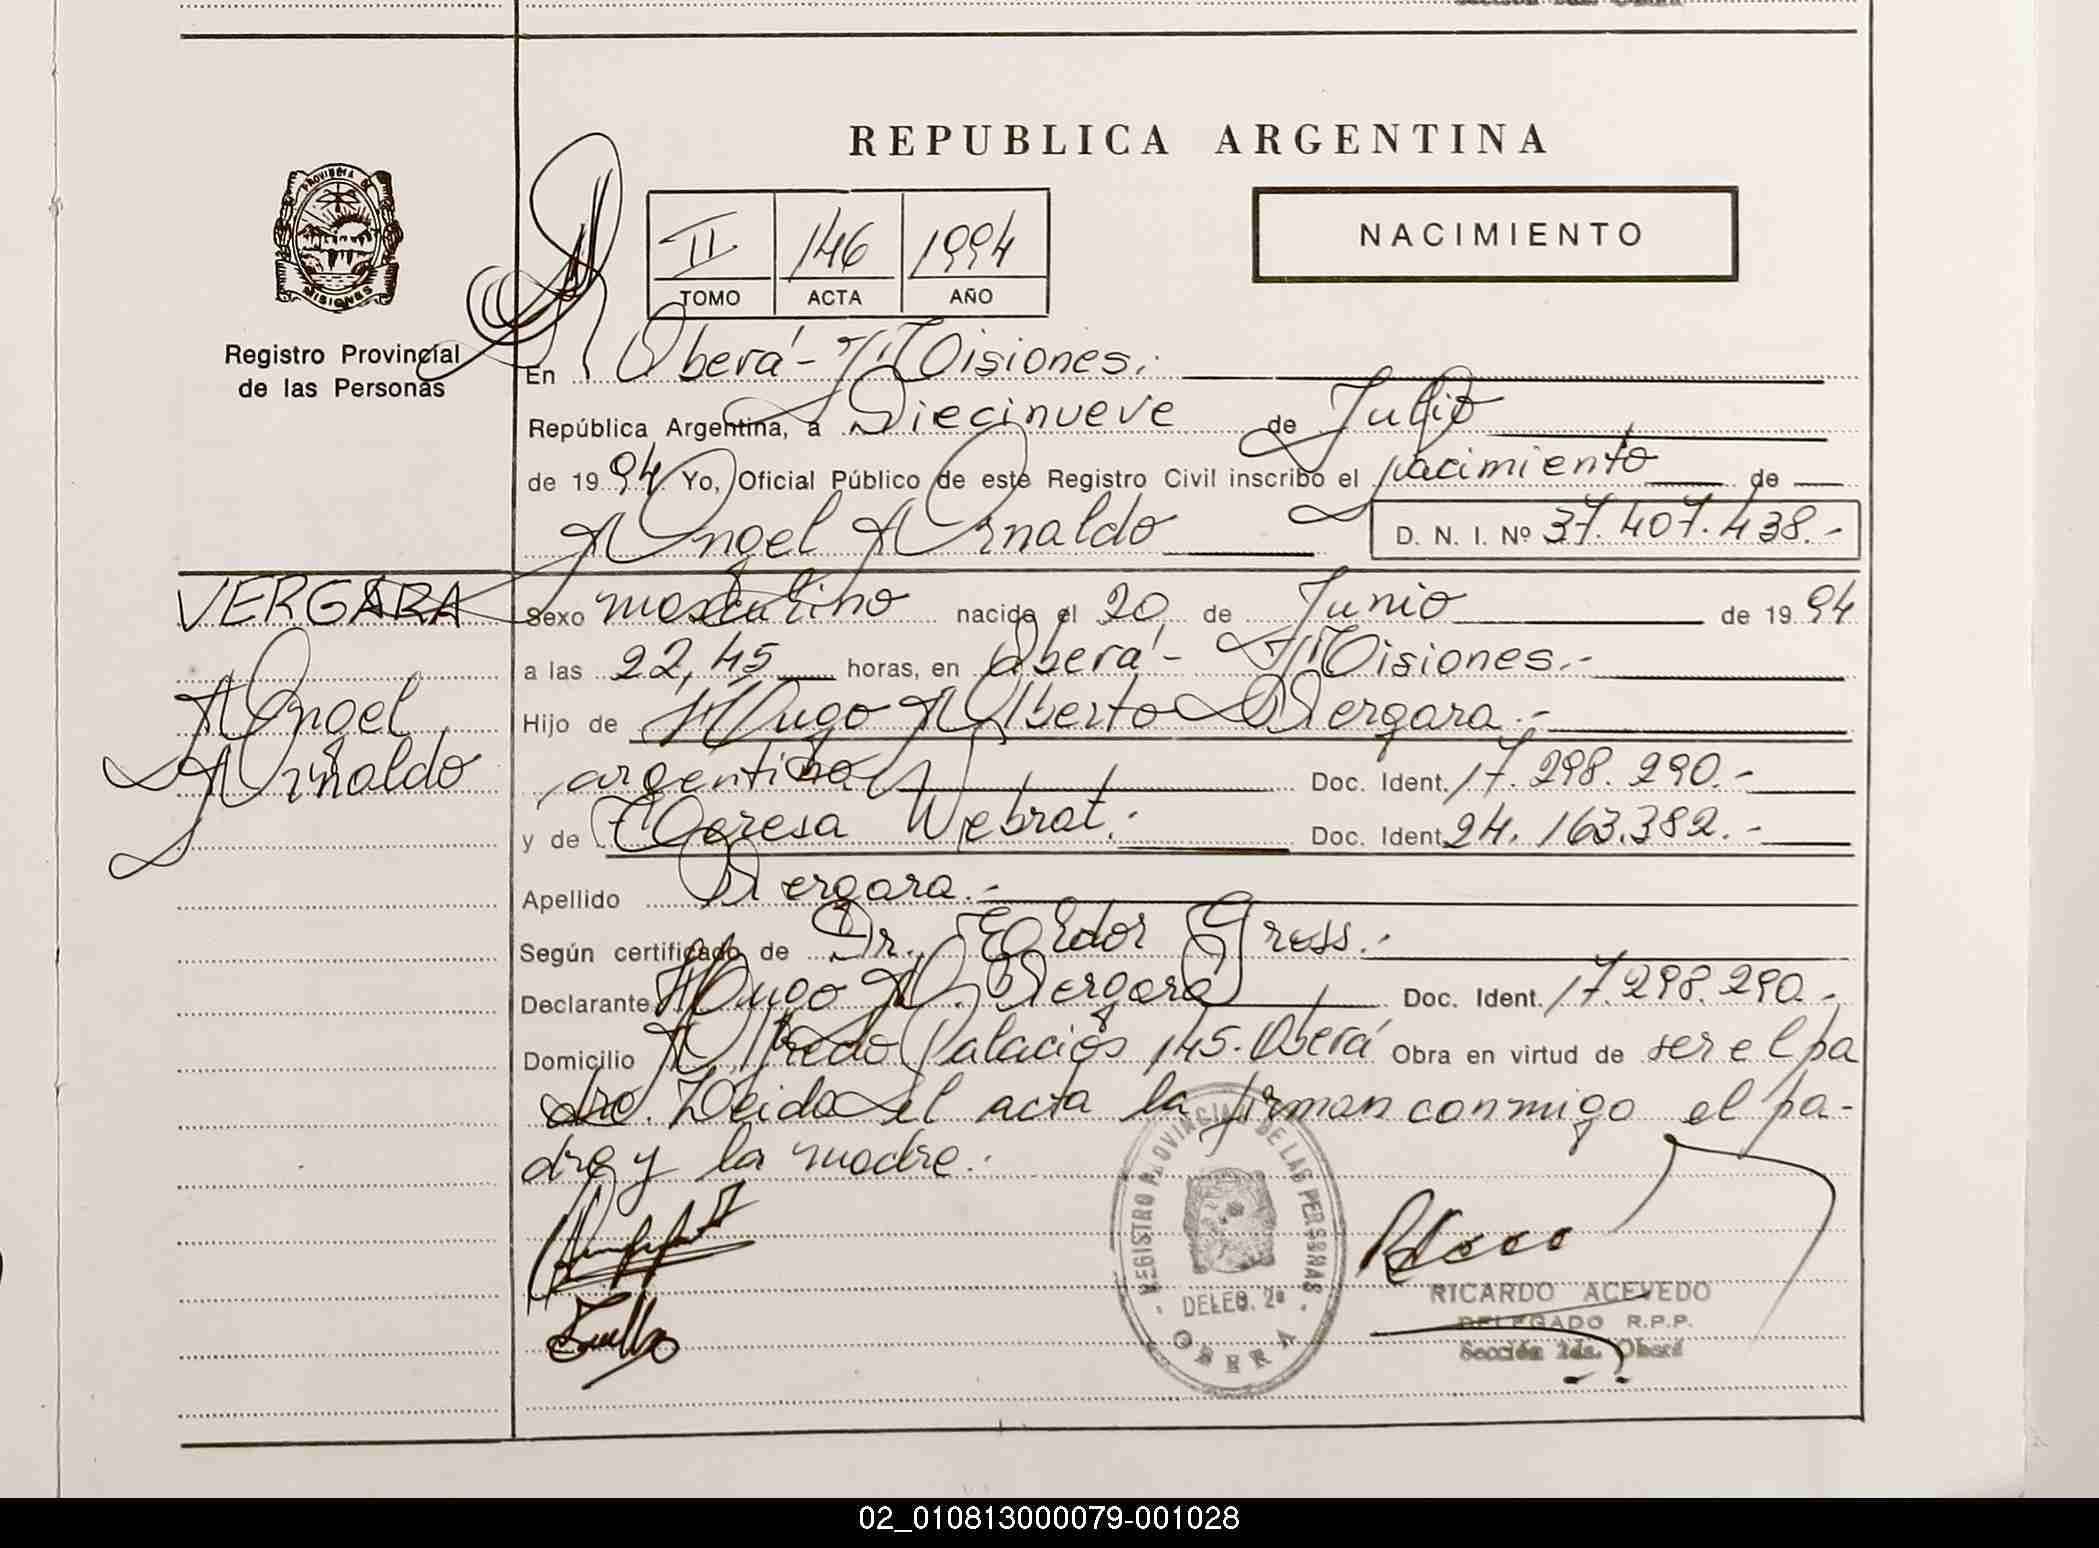 REPUBLICA ARGENTINA
PROVINCIA DE
MISIONES
Registro Provincial
de las Personas
II 146 1994
TOMO ACTA AÑO
NACIMIENTO
En Oberá - Misiones.
República Argentina, a Diecinueve de Julio
de 19 94 Yo, Oficial Público de este Registro Civil inscribo el nacimiento de
Angel Arnaldo D. N. I. Nº 37.407.438.-
VERGARA
Angel
Arnaldo
Sexo masculino nacido el 20 de Junio de 19 94
a las 22,45 horas, en Oberá - Misiones.-
Hijo de Hugo Alberto Vergara.-
argentino Doc. Ident. 17.298.290.-
y de Teresa Webrat.- Doc. Ident. 24.163.382.-
Apellido Vergara.-
Según certificado de Dr. Gress.-
Declarante Hugo A. Vergara Doc. Ident. 17.298.290.-
Domicilio Alfredo Palacios 145. Oberá Obra en virtud de ser el pa
dre. Leida el acta la firman conmigo el pa-
dre y la madre.-
REGISTRO PROVINCIAL DE LAS PERSONAS
DELEG. 2ª
OBERA
RICARDO ACEVEDO
DELEGADO R.P.P.
Sección 2da. Oberá
02_010813000079-001028